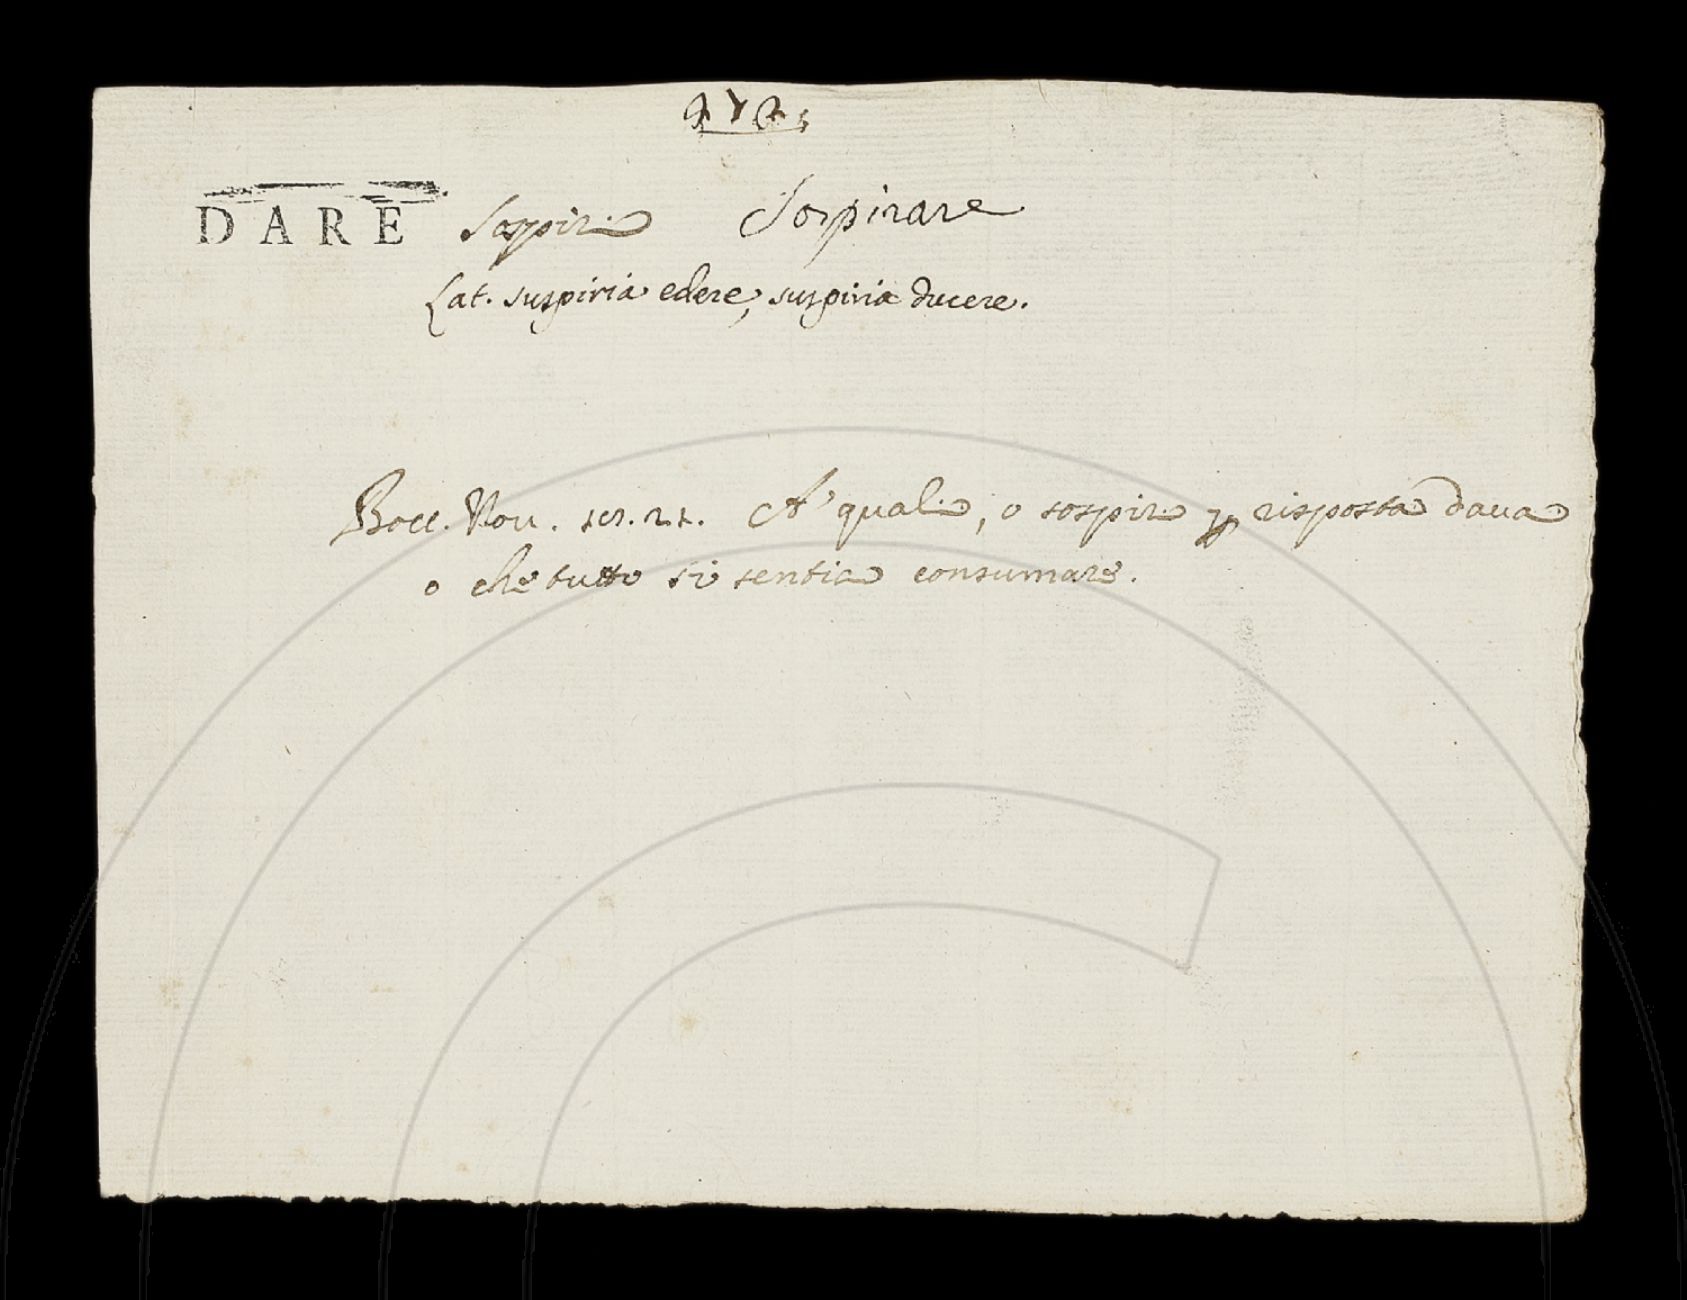 DARE Sospiri Sospirare
Lat. suspiria edere, suspiria ducere.
Bocc. Nov.
A' quali, o sospiri p risposta dava
o che tutto si sentia consumare.